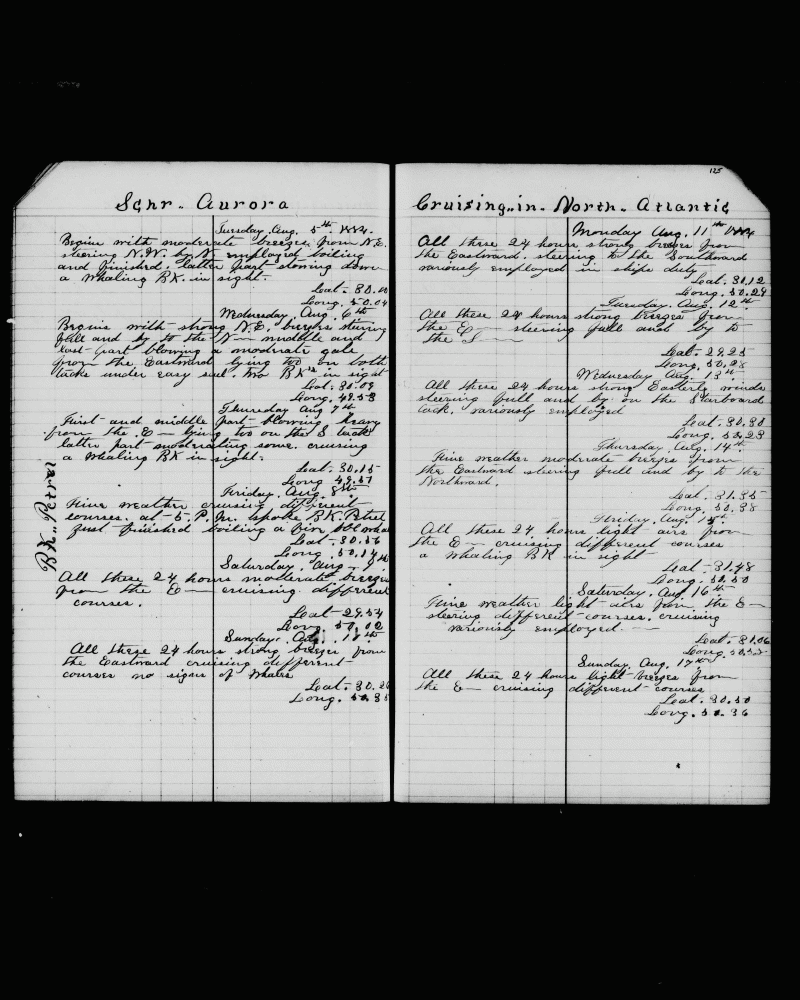 Schr. Aurora
Tuesday, Aug. 5th 1884.
Begins with moderate breezes from N.E.
steering N.W. by N. employed boiling
and finished. latter part stowing down
a whaling BK. in sight.
Lat. 30.00
Long. 50.04
Wednesday, Aug. 6th
Begins with strong N.E. breezes steering
full and by to the N— middle and
last part blowing a moderate gale
from the Eastward lying too on both
tacks under easy sail. two BKs in sight
Lat. 30.09
Long. 49.58
Thursday Aug 7th
First and middle part blowing heavy
from the E— lying too on the S tack
latter part moderating some. cruising
a whaling BK in sight.
Lat. 30.15
Long 49.57
Friday, Aug. 8th
BK. Petrel
Fine weather cruising different
courses. at 5. P.M. spoke BK. Petrel
just finished boiling a fin
Lat. 30.56
Long. 50.14
Saturday, Aug. 9th
All these 24 hours moderate breezes
from the E— cruising different
courses.
Lat. 29.54
Long. 50.02
Sunday. 10th
All these 24 hours strong breezes from
the Eastward cruising different
courses no signs of whales
Lat. 30.26
Long. 50.35
125
Cruising in North Atlantic
Monday Aug. 11th 1884
All these 24 hours strong breezes from
the Eastward. steering to the Southward
variously employed in ships duty
Lat. 30.12
Long. 50.29
Tuesday. Aug. 12th
All these 24 hours strong breezes from
the E— steering full and by to
the S—
Lat. 29.25
Long. 50.28
Wednesday Aug. 13th
All these 24 hours strong Easterly winds
steering full and by on the Starboard
tack. variously employed
Lat. 30.30
Long. 50.23
Thursday, Aug. 14th
Fine weather moderate breezes from
the Eastward steering full and by to the
Northward.
Lat. 31.35
Long. 50.38
Friday. Aug. 15th
All these 24 hours light airs from
the E— cruising different courses
a whaling BK in sight
Lat. 31.48
Long. 50.50
Saturday. Aug 16th
Fine weather light airs from the E—
steering different courses. cruising
variously employed. —
Lat. 31.06
Long. 50.52
Sunday, Aug. 17th
All these 24 hours light breezes from
the E— cruising different courses
Lat. 30.50
Long. 50.36